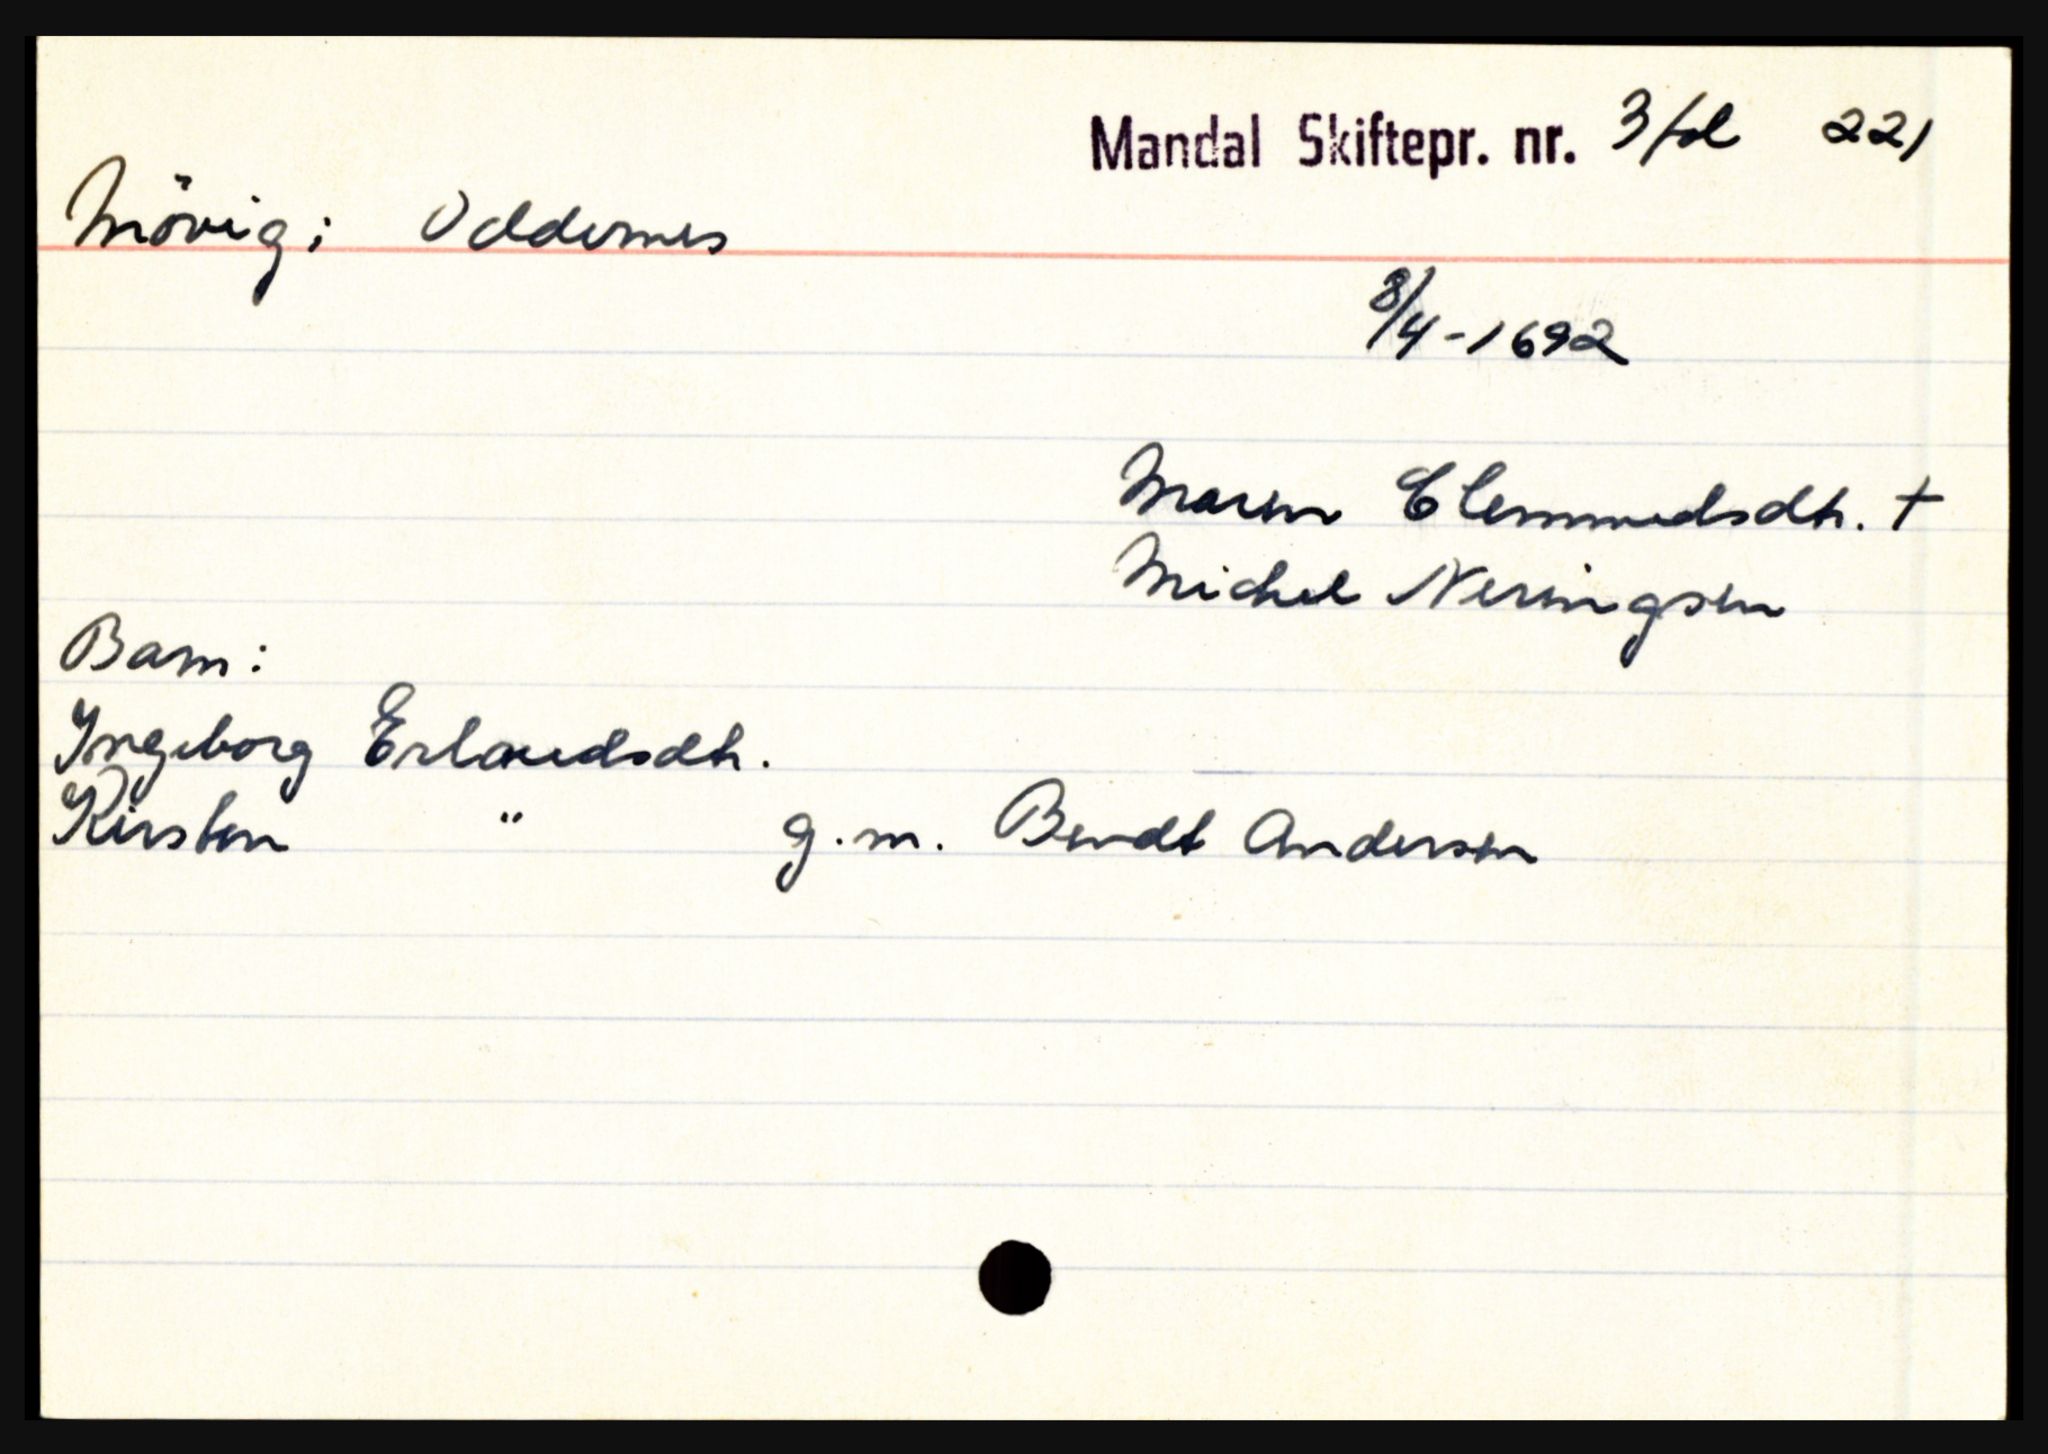 Mandal Skiftepr. nr. 3 fol 221
Mövig; Oddernes
8/4-1692
Maren Clemmedsdtr. †
Michel Neringsen
Barn:
Ingeborg Erlandsdtr.
Kirsten " g.m. Bendt Andersen